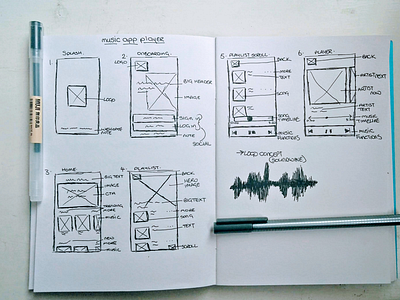 music app player
1. SPLASH
LOGO
WELCOME
NOTE
2. ONBOARDING
LOGO
BIG HEADER
IMAGE
SIGN UP
LOG IN
NOTE
SOCIAL
3. HOME
BIG TEXT
IMAGE
CTA
TRENDING
MORE
MUSIC
NEW
MORE
MUSIC
4. PLAYLIST
BACK
HERO
IMAGE
BIG TEXT
MORE
SONG
TEXT
SCROLL
5. PLAYLIST SCROLL
BACK
MORE
TEXT
SONG
SONG
TIMELINE
MUSIC
FUNCTIONS
6. PLAYER
BACK
ARTIST
TEXT
MUSIC
TIMELINE
MUSIC
FUNCTIONS
→ LOGO CONCEPT
(SOUNDWAVE)
MUJI